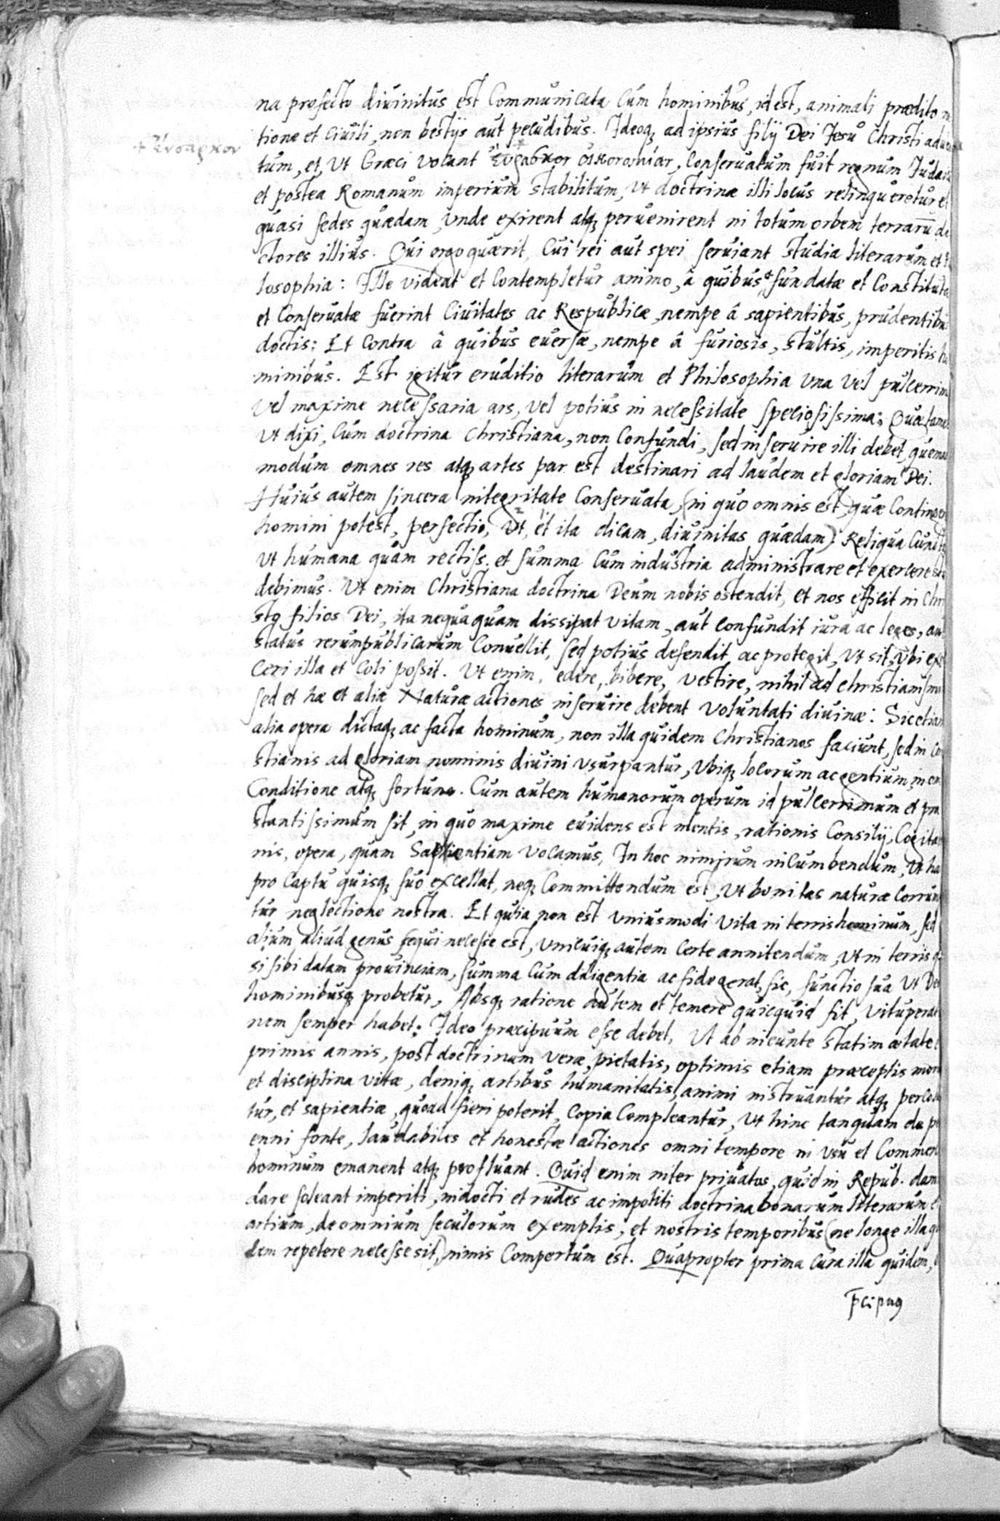 + ἔνσαρκον
na profecto diuinitus est Communicata Cum hominibus, id est, animali prædito
tione et Ciuili, non bestijs aut pecudibus. Ideoq; ad ipsius filij Dei Jesu Christi adu
tum, et, Ut Græci Volant ἔνσαρκον οἰκονομίαν, Conseruatum fuit regnum Iudai
et postea Romanum imperium stabilitum, Ut doctrinæ illi locus relinqueretur et
quasi sedes quædam, Unde exirent atq; peruenirent in totum orbem terrarū do
ctores illius. Qui ergo quærit, Cui rei aut spei seruiant studia literarum et
losophia: Ille videat et Contempletur animo, â quibus fundatæ et Constitutæ
et Conseruatæ fuerint Ciuitates ac Respublicæ, nempe â sapientibus, prudentibu
doctis: Et Contra â quibus euersæ, nempe â furiosis, stultis, imperitis ho
minibus. Est igitur eruditio literarum et Philosophia Una Vel pulcerrim
Vel maxime necessaria ars, Vel potius in necessitate speciosissima: Quæ tame
Ut dixi, Cum doctrina Christiana, non Confundi, sed inseruire illi debet, quema
modum omnes res atq; artes par est destinari ad laudem et gloriam Dei.
Huius autem sincera integritate Conseruata, (in quo omnis est, quæ Continger
homini potest, perfectio, Ut, et ita dicam, diuinitas quædam) Reliqua Cunct
Ut humana quàm rectiss. et summa Cum industria administrare et exercere
debimus. Ut enim Christiana doctrina Deum nobis ostendit, et nos efficit in Chri
sto filios Dei, ita nequaquam dissipat vitam, aut Confundit iura ac leges, au
status rerumpublicarum Conuellit, sed potius defendit, ac protegit, Ut sit, Ubi exe
Ceri illa et Coli possit. Ut enim, edere, bibere, vestire, nihil ad Christianismu
sed et hæ et aliæ Naturæ actiones inseruire debent Voluntati diuinæ: Sic etiam
alia opera dictaq; ac facta hominum, non illa quidem Christianos faciunt, sed in C
stianis ad gloriam nominis diuini Usurpantur, Ubiq; locorum ac gentium, in om
Conditione atq; fortuna. Cum autem humanorum operum id pulcerrimum et pre
stantissimum sit, in quo maxime euidens est mentis, rationis Consilij, Cogitat
nis, opera, quam Sapientiam Vocamus, In hoc nimirum incumbendum, Ut ha
pro Captu quisq; suo excellat, neq; Committendum est, Ut bonitas naturæ Corrum
tur neglectione nostra. Et quia non est Uniusmodi Vita in terris hominum, sed
alium aliud genus sequi necesse est, Unicuiq; autem Certe annitendum, Ut in terris
si sibi datam prouinciam, summa Cum diligentia ac fide gerat, sic, functio sua Ut De
hominibusq; probetur, Absq; ratione autem et temere quicquid fit, Vituperat
nem semper habet: Ideo præcipuum esse debet, Ut ab ineunte statim ætate
primis annis, post doctrinam veræ, pietatis, optimis etiam præceptis mor
et disciplina vitæ, deniq; artibus humanitatis, animi instruantur atq; percol
tur, et sapientiæ, quoad fieri poterit, Copia Compleantur, Ut hinc tanquam de p
enni fonte, laudabiles et honestæ actiones omni tempore in Usu et Commen
hominum emanent atq; profluant. Quid enim inter priuatos, quid in Repub. dam
dare soleant imperiti, indocti et rudes ac impoliti doctrina bonarum literarum
artium, de omnium seculorum exemplis, et nostris temporibus (ne longe illa q
dem repetere necesse sit,) nimis Compertum est. Quapropter prima Cura illa quidem,
p̄cipuq